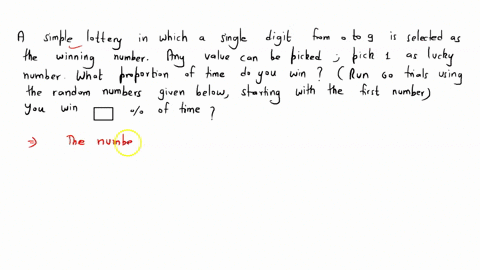 A simple lottery in which a single digit from 0 to 9 is selected as
the winning number. Any value can be picked ; pick 1 as lucky
number. What proportion of time do you win ? ( Run 60 trials using
the random numbers given below, starting with the first number)
You win % of time ?
⇒ The numbe